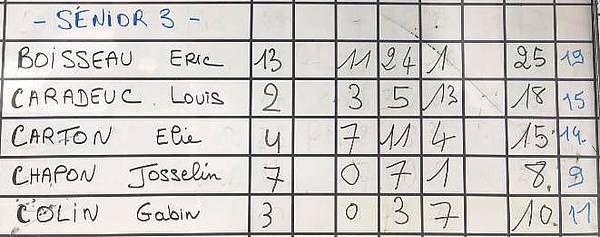 - SÉNIOR 3 -
BOISSEAU ERIC 13 11 24 1 25 19
CARADEUC LOUIS 2 3 5 13 18 15
CARTON Elie 4 7 11 4 15. 14.
CHAPON Josselin 7 0 7 1 8. 9
COLIN Gabin 3 0 3 7 10. 11